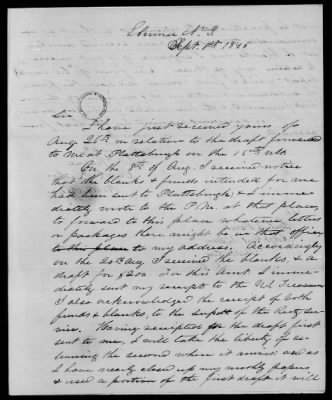 Elmira N.Y.
Sept. 1st 1846
Sir
I have just received yours of
Aug 26th in relation to the draft forwarded
to me at Plattsburgh on the 15th
On the 8th of Aug. I received notice
that the blanks & funds intended for me
had been sent to Plattsburgh, & I imme
diately wrote to the P.M. at that place,
to forward to this place whatever letters
or packages there might be in that office
to this place to my address. Accordingly
on the 20th Aug I received the blanks, & a
draft for $200. For this Amt I imme
diately sent my receipt to the U.S. Treasurer
I also acknowledged the receipt of both
funds & blanks, to the Supdt of the Rectg ser
vice. Having receipted for the draft first
sent to me, I will take the liberty of re
turning the second when it arrives: and as
I have nearly closed up my monthly papers
& used a portion of the first draft it will